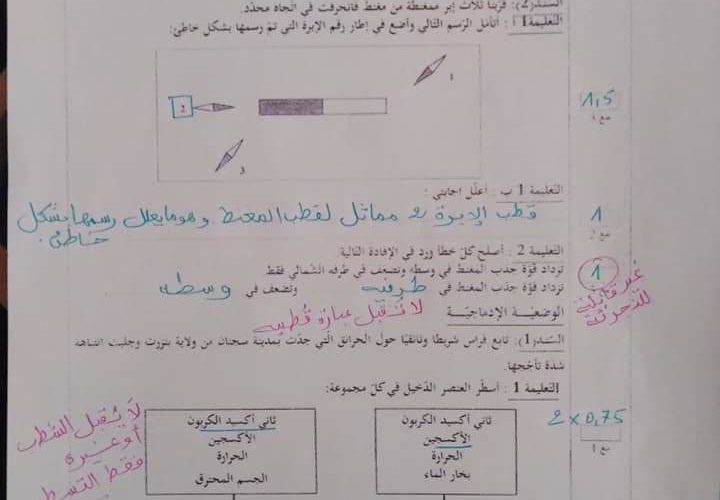 السند(2): قربنا ثلاث إبر ممغنطة من مغنط فانحرفت في اتجاه محدد.
التعليمة 1 أ : أتأمل الرسم التالي وأضع في إطار رقم الإبرة التي تم رسمها بشكل خاطئ:
1
2
3
1,5
مع 1
التعليمة 1 ب : أعلل إجابتي :
قطب الإبرة 2 مماثل لقطب المغنط وهو ما يعلل رسمها بشكل
خاطئ.
1
مع 2
التعليمة 2 : أصلح كل خطإ ورد في الإفادة التالية:
تزداد قوة جذب المغنط في وسطه وتضعف في طرفه الشمالي فقط
تزداد قوة جذب المغنط في طرفيه وتضعف في وسطه
1
غير قابلة
للتجزئة
لا تقبل عبارة قطبيه
الوضعية الإدماجية
السند(1): تابع فراس شريطا وثائقيا حول الحرائق التي جدت بمدينة سجنان من ولاية بنزرت وجلبت انتباهه
شدة تأججها.
التعليمة 1 : أسطر العنصر الدخيل في كل مجموعة:
2 × 0,75
مع 1
ثاني أكسيد الكربون
الأكسجين
الحرارة
بخار الماء
ثاني أكسيد الكربون
الأكسجين
الحرارة
الجسم المحترق
لا يقبل الشطب
أو غيره
فقط